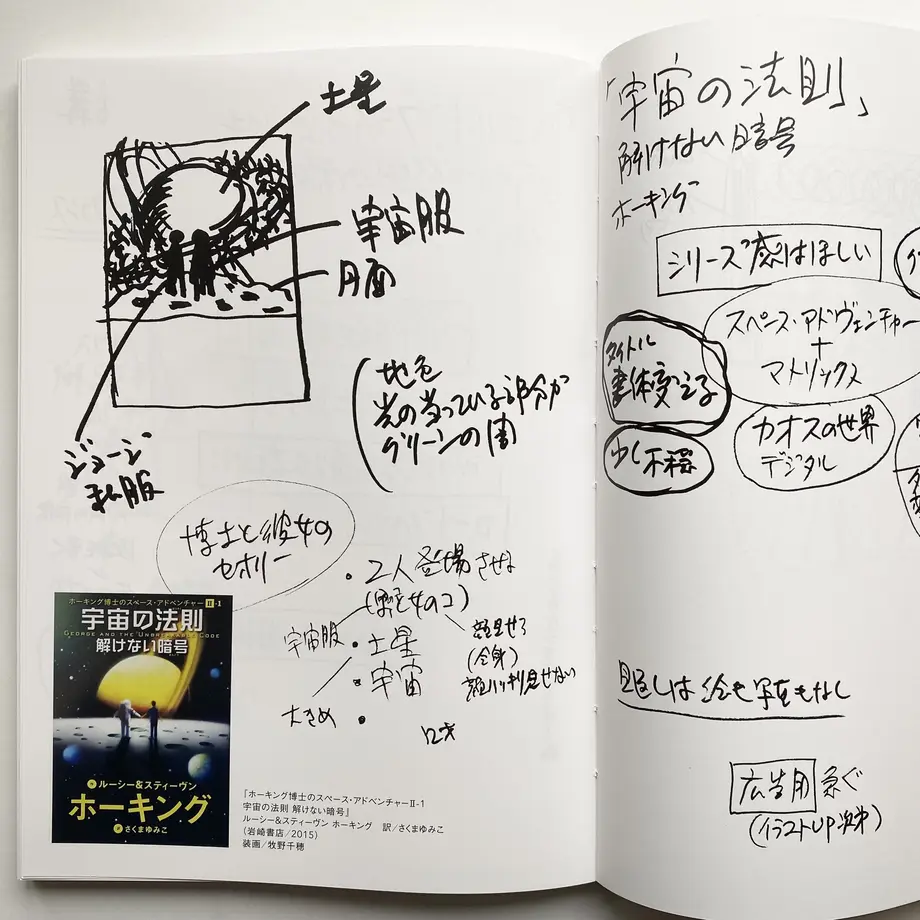 土星
宇宙服
月面
ジョージ
私服
地色
光の当っている部分が
グリーンの闇
博士と彼女の
セオリー
・2人登場させる
宇宙服
・土星
・宇宙
顔見せる
(全身)
顔ハッキリ見せない
大きめ
ホーキング博士のスペース・アドベンチャー II-1
宇宙の法則
GEORGE AND THE UNBREAKABLE CODE
解けない暗号
作 ルーシー&スティーヴン
ホーキング
訳 さくまゆみこ
『ホーキング博士のスペース・アドベンチャーII-1
宇宙の法則 解けない暗号』
ルーシー&スティーヴン ホーキング 訳/さくまゆみこ
(岩崎書店/2015)
装画/牧野千穂
「宇宙の法則」
解けない暗号
ホーキング
シリーズ感はほしい
スペース・アドヴェンチャー
+
マトリックス
タイトル
書体変える
少し不穏
カオスの世界
デジタル
見返しは絵も写真もなし
広告用 急ぐ
(イラストUP次第)